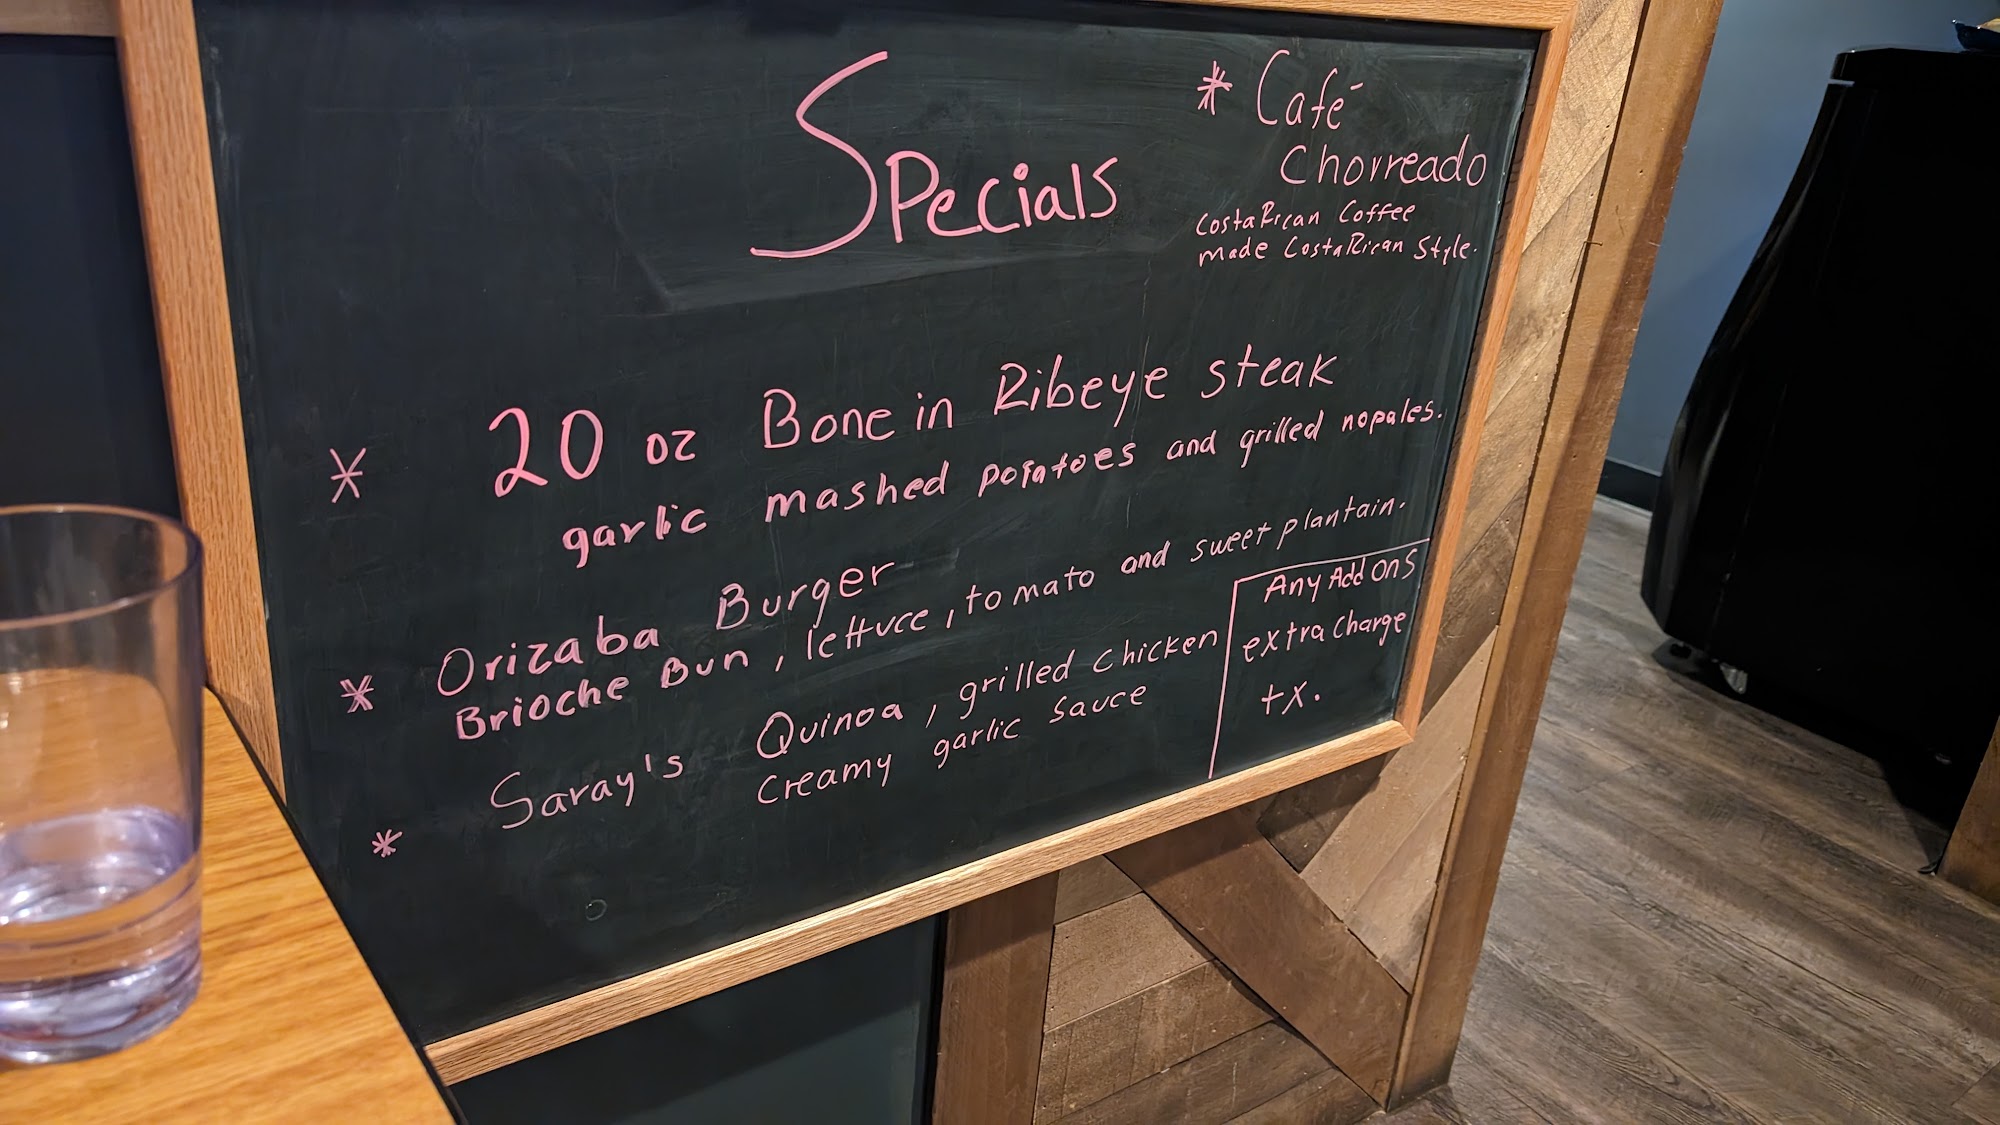 Specials
* Café
Chorreado
Costa Rican Coffee
made Costa Rican Style.
* 20 oz Bone in Ribeye steak
garlic mashed potatoes and grilled nopales.
* Orizaba Burger
Brioche Bun, lettuce, tomato and sweet plantain.
* Saray's Quinoa, grilled chicken
creamy garlic sauce
Any Add ons
extra charge
tx.